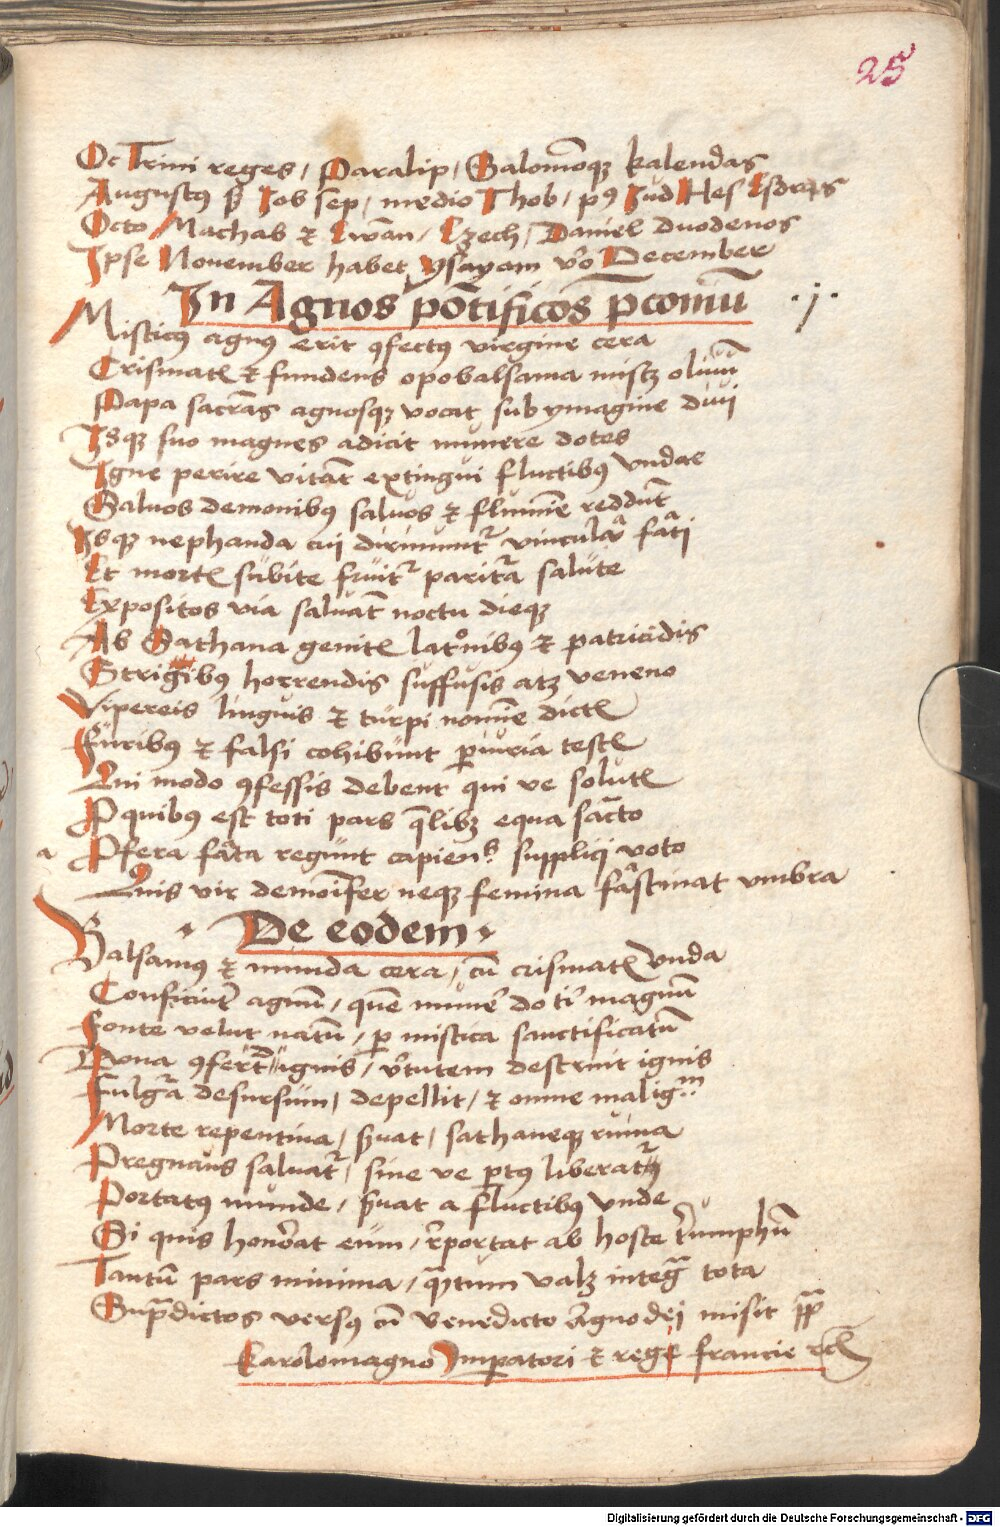 25
Oc Trini reges / Paralip / Salomōq; kalendas
Augustꝰ Iob sep / medio Thob / pꝰ Iud Hes Esdras
Octo Machab ⁊ Ewan / Ezech / Daniel duodenos
Ipse Nouember habet ysayam v̄o December
In Agnos pōtificos p̄coniū .j.
Misticꝰ agnꝰ erit ꝯfectꝰ virgine cera
Crismatꝭ ⁊ fundens opobalsama mistꝫ oliuū
Papa sacrās agnosqꝫ vocat sub ymagine diui
Isqꝫ suo magnes adicit munere dotes
Igne perire vitāt extingui fluctibꝰ vndae
Saluos demonibꝰ saluos ⁊ flumīe reddūt
Isqꝫ nephanda cui dirimunt᷑ vincula fati
Et mortꝭ subite fruit᷑ salute
Expositos via saluāt noctu dieqꝫ
Ab Sathana genitꝭ latͦnibꝰ ⁊ patricidis
Strigibꝰ horrendis suffusis atqꝫ veneno
Vipereis linguis ⁊ turpi nomīe dictꝭ
Furibꝰ ⁊ falsi cohibunt ꝑiuria testꝭ
Qui modo ꝯfessis debent qui ve solutꝭ
P quibꝰ est toti pars q̄libꝫ equa sācto
a Pfera fata regunt capienˢ suppliciꝗ voto
Quis vir demonīfer neqꝫ femina fascinat vmbra
De eodem
Balsamꝰ ⁊ munda cera / cū crismatꝭ vnda
Conficiūt agnū / quē munē do tꝭ magnū
Fonte velut natū / ꝑ mistica sanctificatū
Dona ꝯfert᷑ ignis / v̄tutem destruit ignis
Fulgᷓa desursum / depellit / ⁊ omne maligᵐ
Morte repentina / ẜuat / sathaneqꝫ ruina
Pregnans saluat᷑ / sine ve ꝑtꝰ liberat᷑
Portatꝰ munde / ẜuat a fluctibꝰ vnde
Si quis honōat eum / r̄portat ab hoste triumphū
Tantū pars minima / qᷓtum valꝫ integᷓ tota
Supᷓdictos versꝰ cū benedicto Agno dei misit pp̄
Karolomagno Imꝑatori ⁊ rege francie ⁊cꝭ
Digitalisierung gefördert durch die Deutsche Forschungsgemeinschaft - DFG